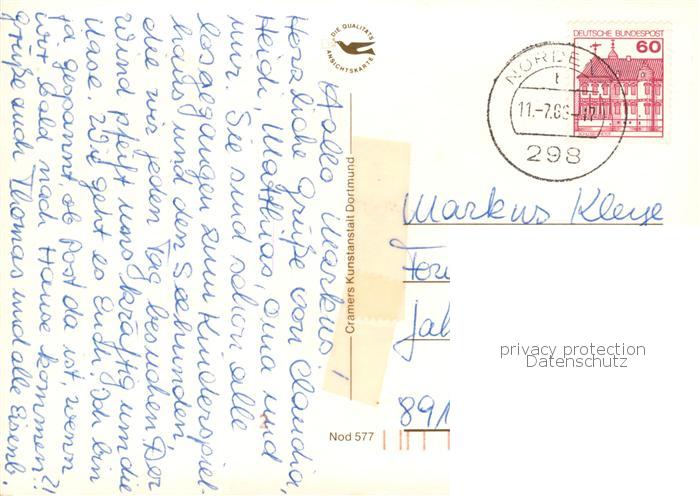 Hallo Markus!
Herzliche Grüße von Claudia,
Heidi, Matthias, Oma und
mir. Sie sind schon alle
losgegangen zum Kinderspiel-
haus und den Seehunden,
die wir jeden Tag besuchen. Der
Wind pfeift uns kräftig um die
Nase. Wie geht es Euch? Ich bin
ja gespannt, ob Post da ist, wenn
wir bald nach Hause kommen!
grüße auch Thomas und alle
DIE QUALITÄTS
ANSICHTSKARTE
Cramers Kunstanstalt Dortmund
Nod 577
DEUTSCHE BUNDESPOST
60
NORDE
t
11.-7.86-17
298
Markus Kleye
891
privacy protection
Datenschutz